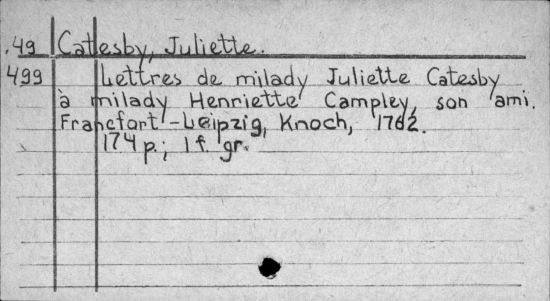 .49 Catlesby, Juliette.
499 Lettres de milady Juliette Catesby
à milady Henriette Campley, son ami.
Francfort-Leipzig, Knoch, 1762.
174 p.; 1 f. gr.